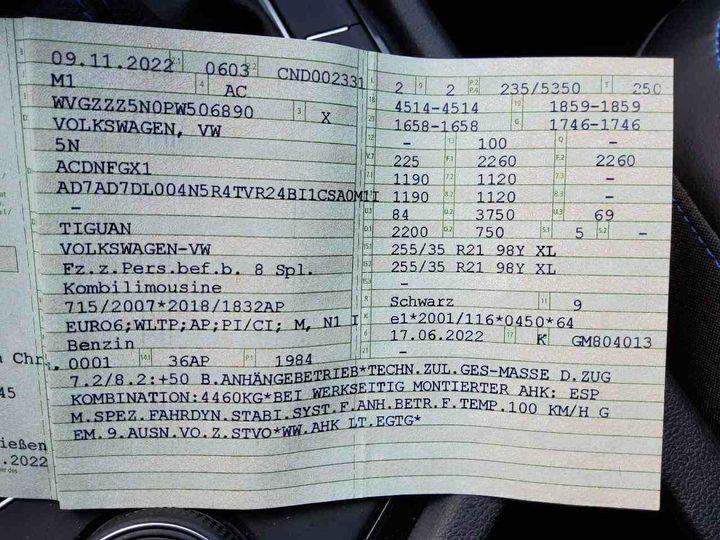 09.11.2022 0603 CND002331
M1 AC
WVGZZZ5N0PW506890 X
VOLKSWAGEN, VW
5N
ACDNFGX1
AD7AD7DL004N5R4TVR24BI1CSA0M1I
-
TIGUAN
VOLKSWAGEN-VW
Fz.z.Pers.bef.b. 8 Spl.
Kombilimousine
715/2007*2018/1832AP
EURO6;WLTP;AP;PI/CI; M, N1 I
Benzin
0001 36AP 1984
2 2 235/5350 250
4514-4514 1859-1859
1658-1658 1746-1746
- 100 -
225 2260 2260
1190 1120 -
1190 1120 -
84 3750 69
2200 750 5 -
255/35 R21 98Y XL
255/35 R21 98Y XL
-
Schwarz 9
e1*2001/116*0450*64
17.06.2022 K GM804013
-
7.2/8.2:+50 B.ANHÄNGEBETRIEB*TECHN.ZUL.GES-MASSE D.ZUG
KOMBINATION:4460KG*BEI WERKSEITIG MONTIERTER AHK: ESP
M.SPEZ.FAHRDYN.STABI.SYST.F.ANH.BETR.F.TEMP.100 KM/H G
EM.9.AUSN.VO.Z.STVO*WW.AHK LT.EGTG*
Chr.
45
ießen
.2022